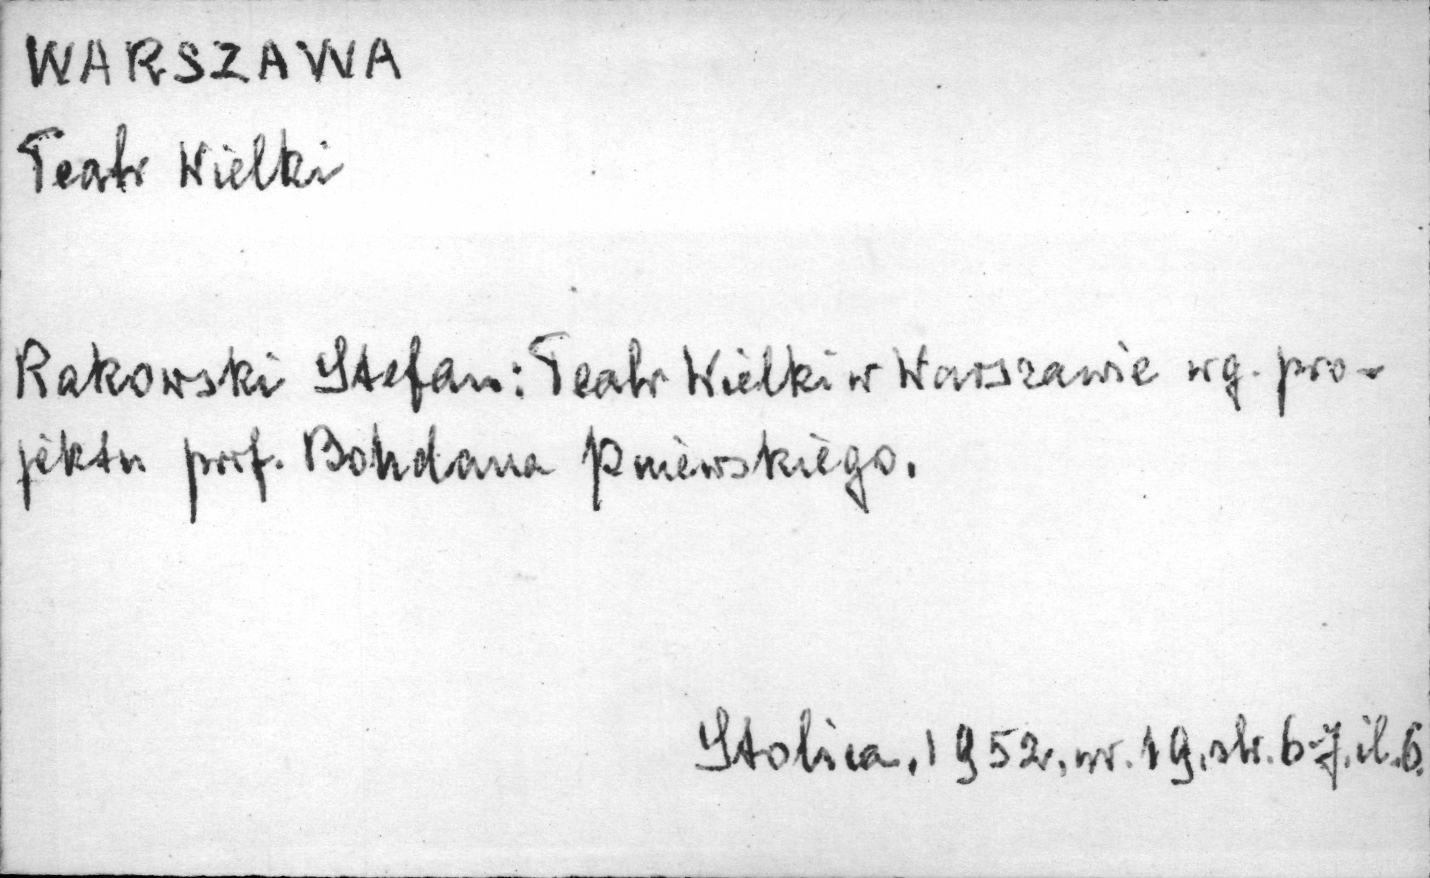 WARSZAWA
Teatr Wielki
Rakowski Stefan: Teatr Wielki w Warszawie wg. pro-
jektu prof. Bohdana Pniewskiego.
Stolica, 1952r, nr. 19, str. 6-7, il. 6.